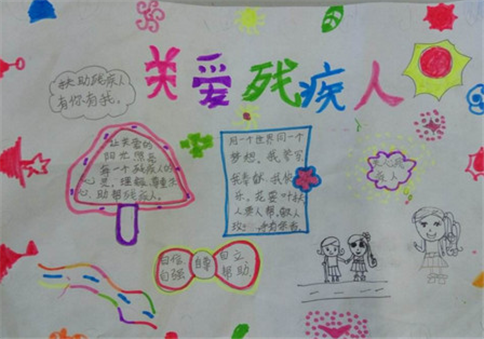 关爱残疾人
扶助残疾人
有你有我。
让关爱的
阳光照亮
每一个残疾人的
心灵，理解，尊重，关
心，助帮残疾人。
同一个世界同一个
梦想，我劳
我奉献，我快
乐。花要叶扶
人要人帮，敬人
关心残
疾人
自信
自强
自尊
自立
帮助